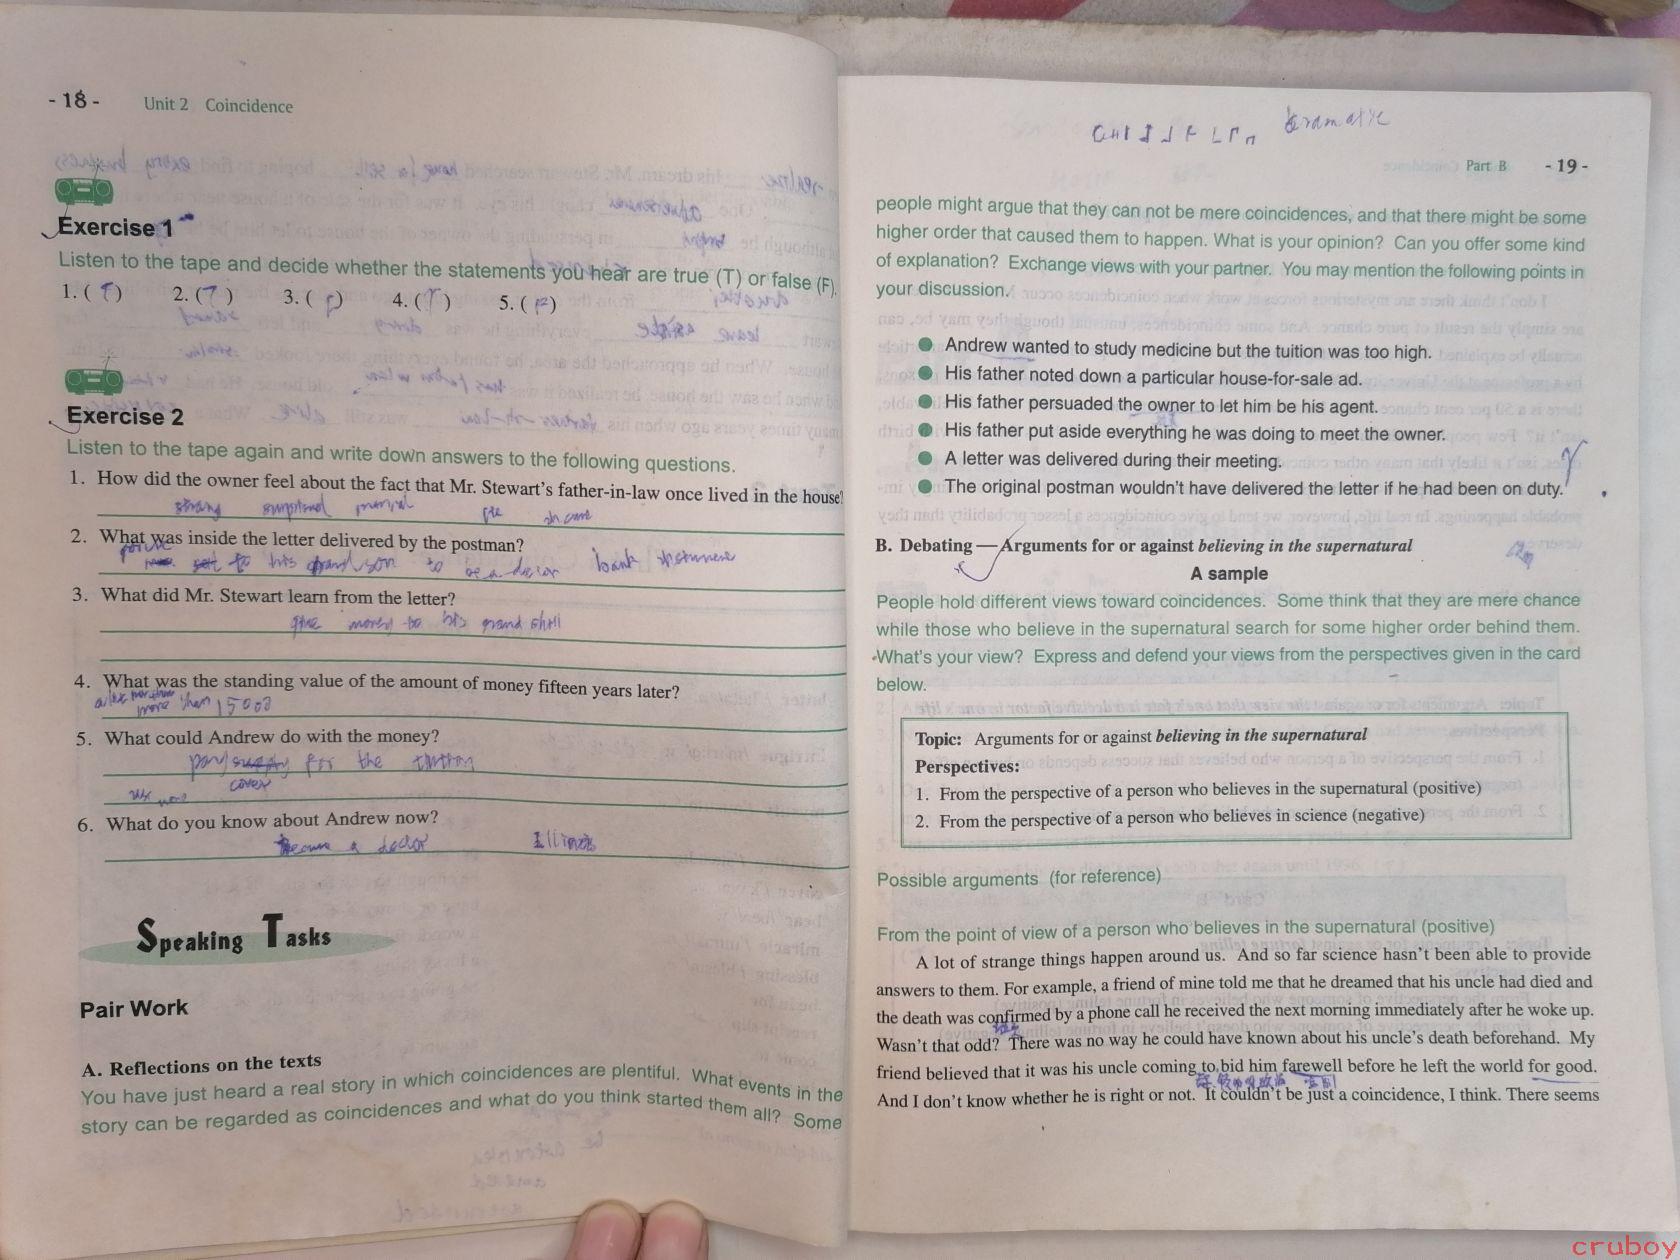 - 18 -
Unit 2 Coincidence
Exercise 1
Listen to the tape and decide whether the statements you hear are true (T) or false (F).
1. ( T ) 2. ( T ) 3. ( F ) 4. ( T ) 5. ( F )
Exercise 2
Listen to the tape again and write down answers to the following questions.
1. How did the owner feel about the fact that Mr. Stewart's father-in-law once lived in the house?
2. What was inside the letter delivered by the postman?
to his grandson to be a doctor bank
3. What did Mr. Stewart learn from the letter?
give money to his grand
4. What was the standing value of the amount of money fifteen years later?
more than 15000
5. What could Andrew do with the money?
pay for the
cover
6. What do you know about Andrew now?
became a doctor
Speaking Tasks
Pair Work
A. Reflections on the texts
You have just heard a real story in which coincidences are plentiful. What events in the
story can be regarded as coincidences and what do you think started them all? Some
dramatic
Part B - 19 -
people might argue that they can not be mere coincidences, and that there might be some
higher order that caused them to happen. What is your opinion? Can you offer some kind
of explanation? Exchange views with your partner. You may mention the following points in
your discussion.
● Andrew wanted to study medicine but the tuition was too high.
● His father noted down a particular house-for-sale ad.
● His father persuaded the owner to let him be his agent.
● His father put aside everything he was doing to meet the owner.
● A letter was delivered during their meeting.
● The original postman wouldn't have delivered the letter if he had been on duty.
B. Debating — Arguments for or against believing in the supernatural
A sample
People hold different views toward coincidences. Some think that they are mere chance
while those who believe in the supernatural search for some higher order behind them.
What's your view? Express and defend your views from the perspectives given in the card
below.
Topic: Arguments for or against believing in the supernatural
Perspectives:
1. From the perspective of a person who believes in the supernatural (positive)
2. From the perspective of a person who believes in science (negative)
Possible arguments (for reference)
From the point of view of a person who believes in the supernatural (positive)
A lot of strange things happen around us. And so far science hasn't been able to provide
answers to them. For example, a friend of mine told me that he dreamed that his uncle had died and
the death was confirmed by a phone call he received the next morning immediately after he woke up.
Wasn't that odd? There was no way he could have known about his uncle's death beforehand. My
friend believed that it was his uncle coming to bid him farewell before he left the world for good.
And I don't know whether he is right or not. It couldn't be just a coincidence, I think. There seems
cruboy